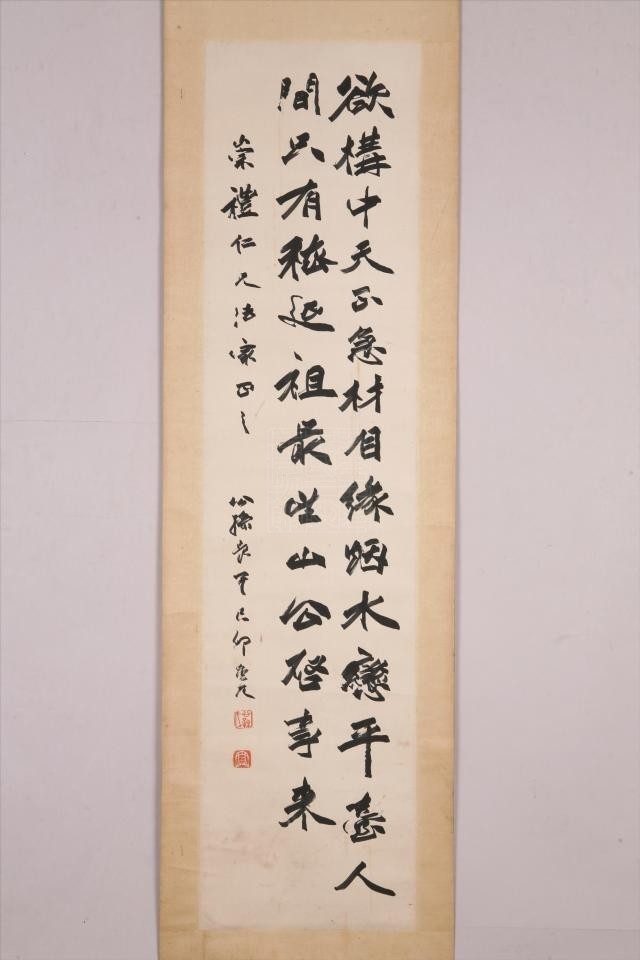 欲構中天正急材自緣烟水戀平臺人
間只有嵇延祖最望山公啓事來
崇禮仁兄法家正之
公孫長子己卯